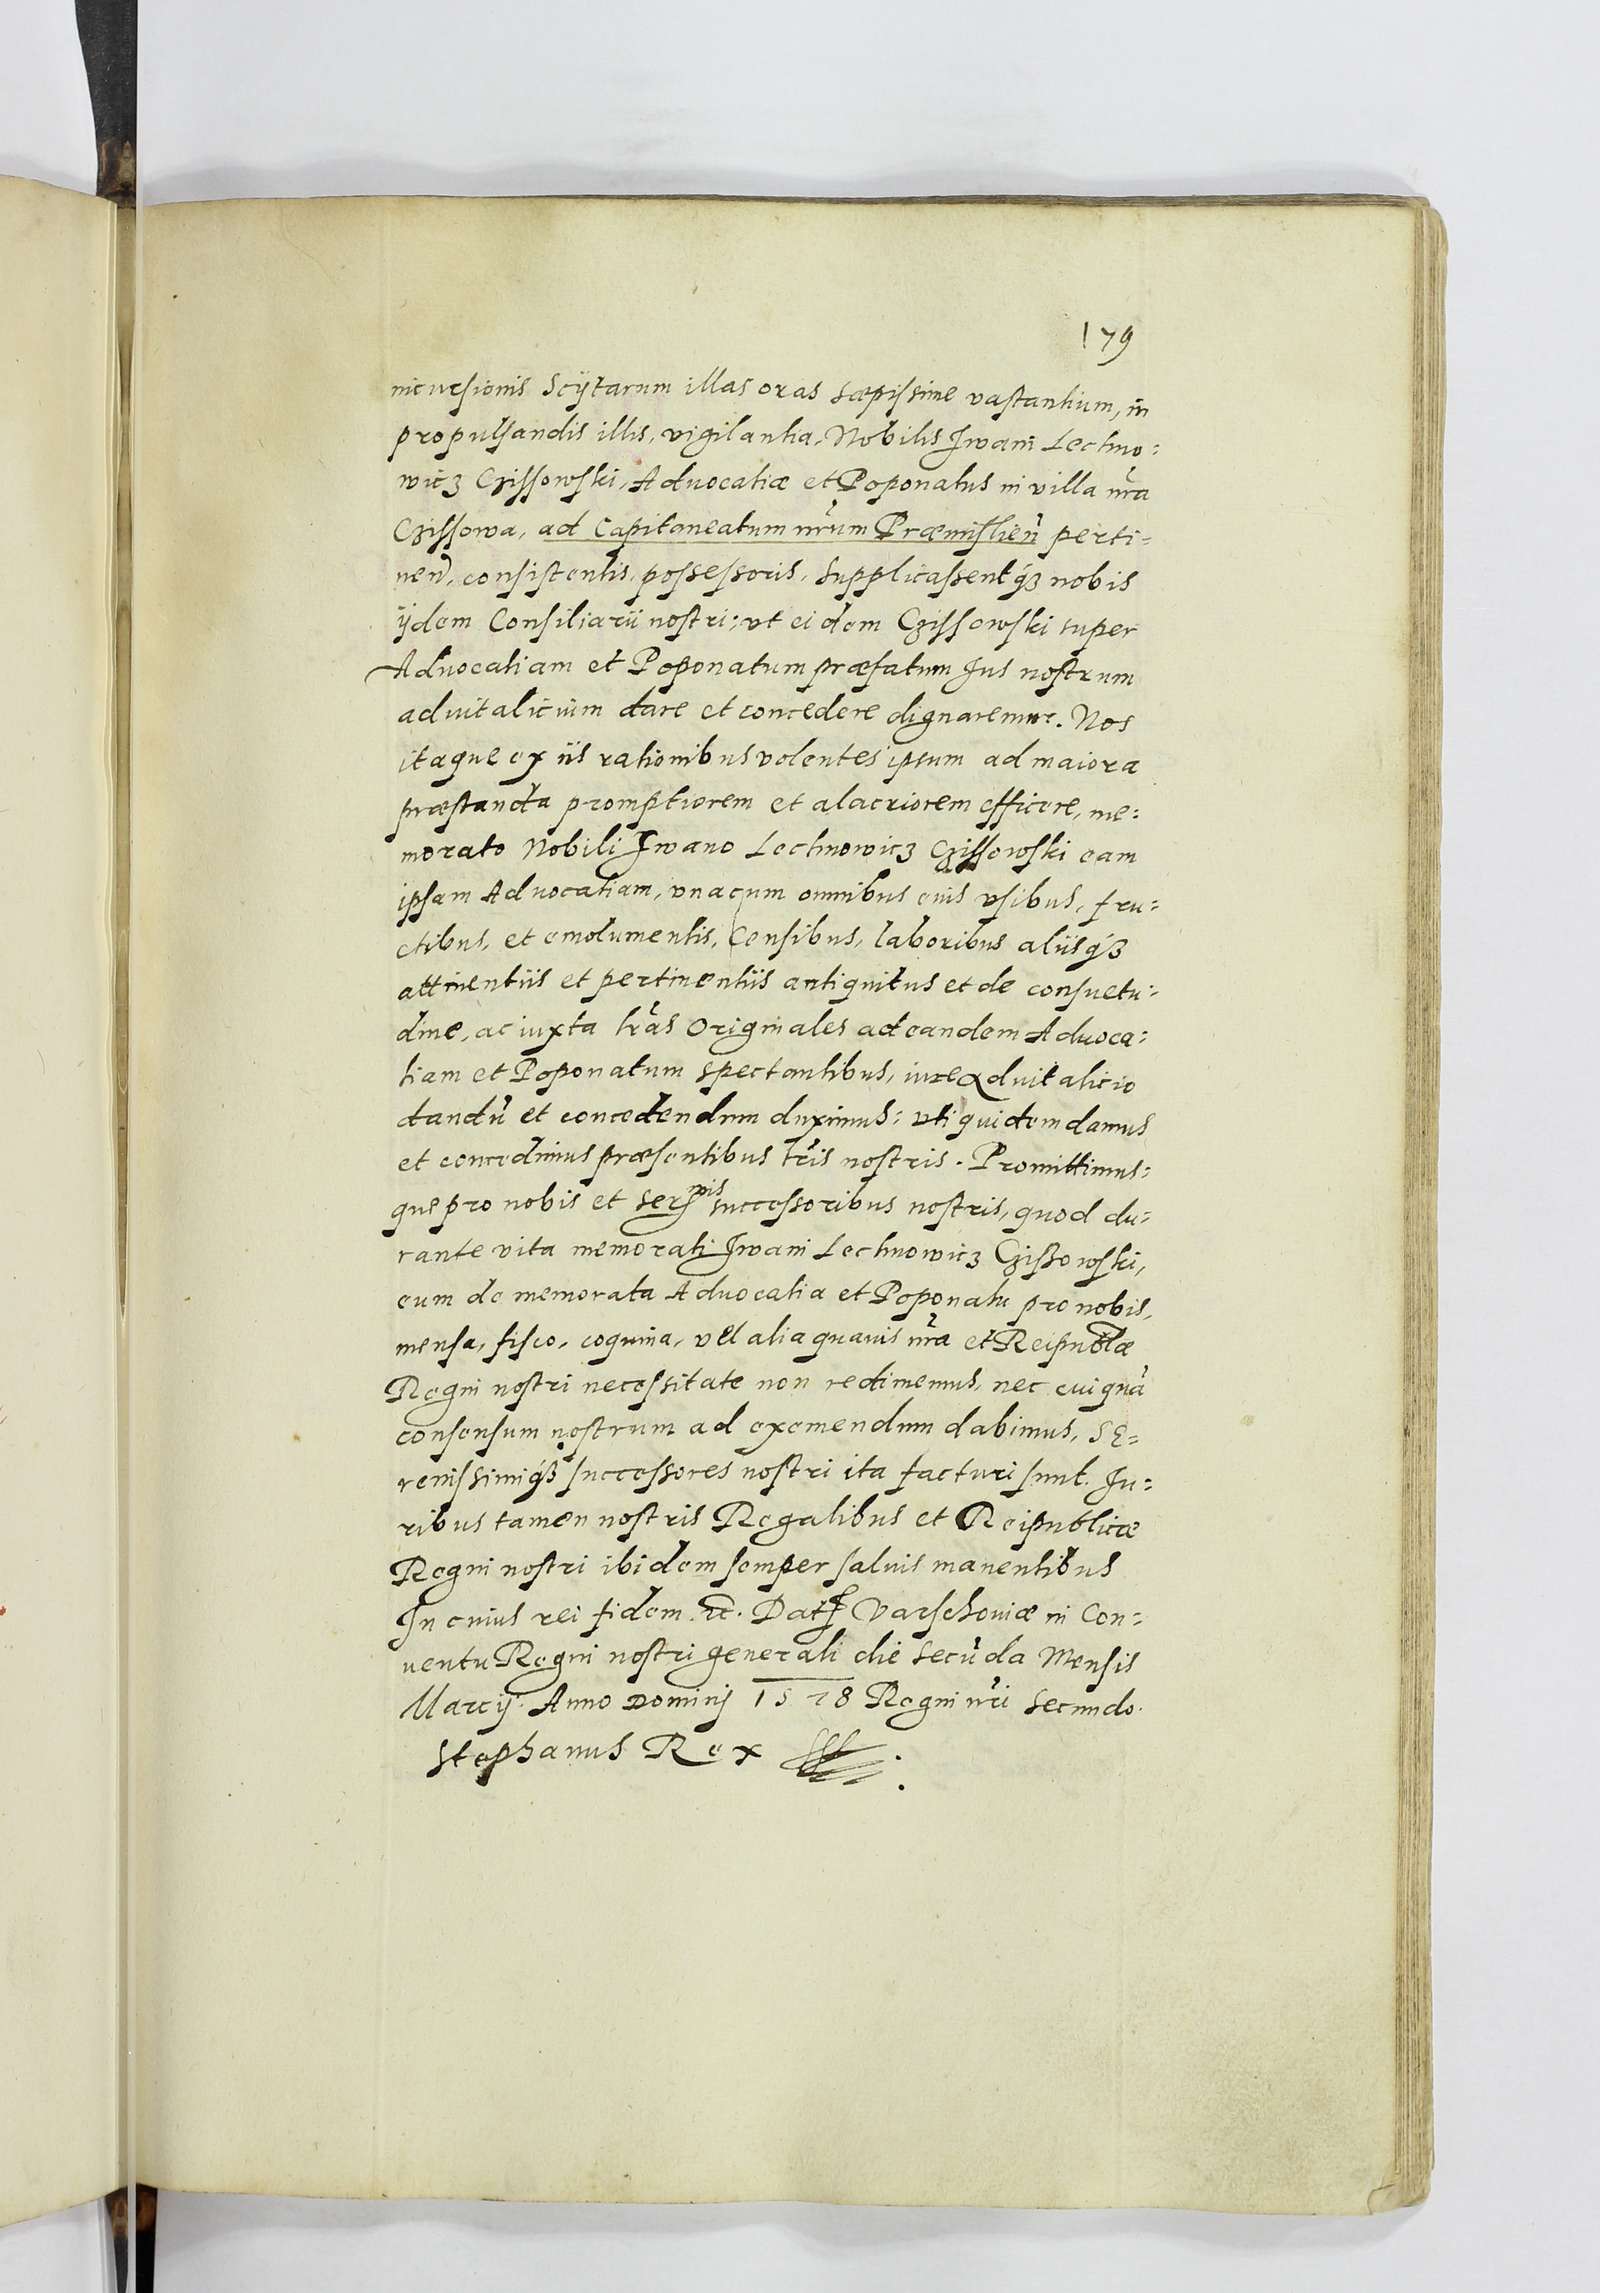 179
incursionis Scÿtarum illas oras sæpissime vastantium, in
propulsandis illis, vigilantia, Nobilis Iwani Lechno=
wicz Czissowski, Advocatiæ et Poponatus in villa nr̃a
Czissowa, ad Capitaneatum nr̃um Præmislień perti=
neń, consistentis, possessoris, supplicassentq́ꝫ nobis
ijdem Consiliarii nostri; vt eidem Czissowski super
Advocatiam et Poponatum præfatum Jus nostrum
aduitalicium dare et concedere dignaremur. Nos
itaque ex iis rationibus volentes ipsum ad maiora
præstanda promptiorem et alacriorem efficere, me=
morato Nobili Iwano Lechnowicz Czissowski eam
ipsam Advocatiam, vnacum omnibus eius vsibus, fru=
ctibus, et emolumentis, Censibus, laboribus aliisq́ꝫ
attinentiis et pertinentiis antiquitus et de consuetu=
dine, ac iuxta lr̃as Originales ad eandem Advoca=
tiam et Poponatum spectantibus, iure aduitalicio
dandũ et concedendum duximus: vti quidem damus
et concedimus præsentibus lr̃is nostris. Promittimus=
que pro nobis et Ser^mis successoribus nostris, quod du=
rante vita memorati Iwani Lechnowicz Czißowski,
eum de memorata Advocatia et Poponatu pro nobis,
mensa, fisco, coquina, vel alia quauis nr̃a et Reipublæ
Regni nostri necessitate non redimemus, nec cuiquã
consensum nostrum ad exemendum dabimus, Se=
renissimiq́ꝫ successores nostri ita facturi sunt. Iu=
ribus tamen nostris Regalibus et Reipublicæ
Regni nostri ibidem semper saluis manentibus
In cuius rei fidem etc. Dat Varschouiæ in Con=
uentu Regni nostri generali die secũda Mensis
Marcij. Anno Dominj 1578 Regni nr̃i Secundo.
Stephanus Rex